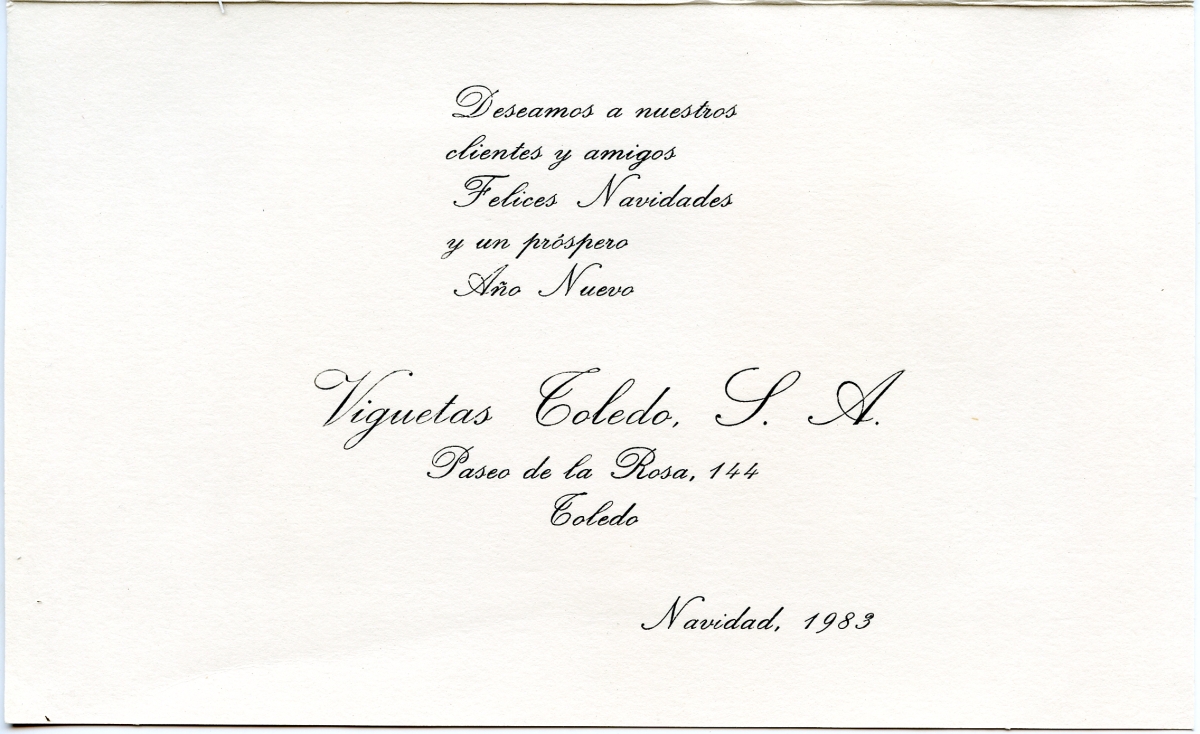 Deseamos a nuestros
clientes y amigos
Felices Navidades
y un próspero
Año Nuevo
Viguetas Toledo, S. A.
Paseo de la Rosa, 144
Toledo
Navidad, 1983